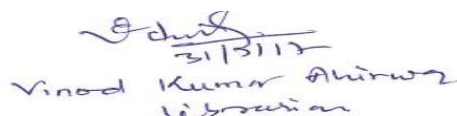 31/3/17
Vinod Kumar Ahirwar
Librarian